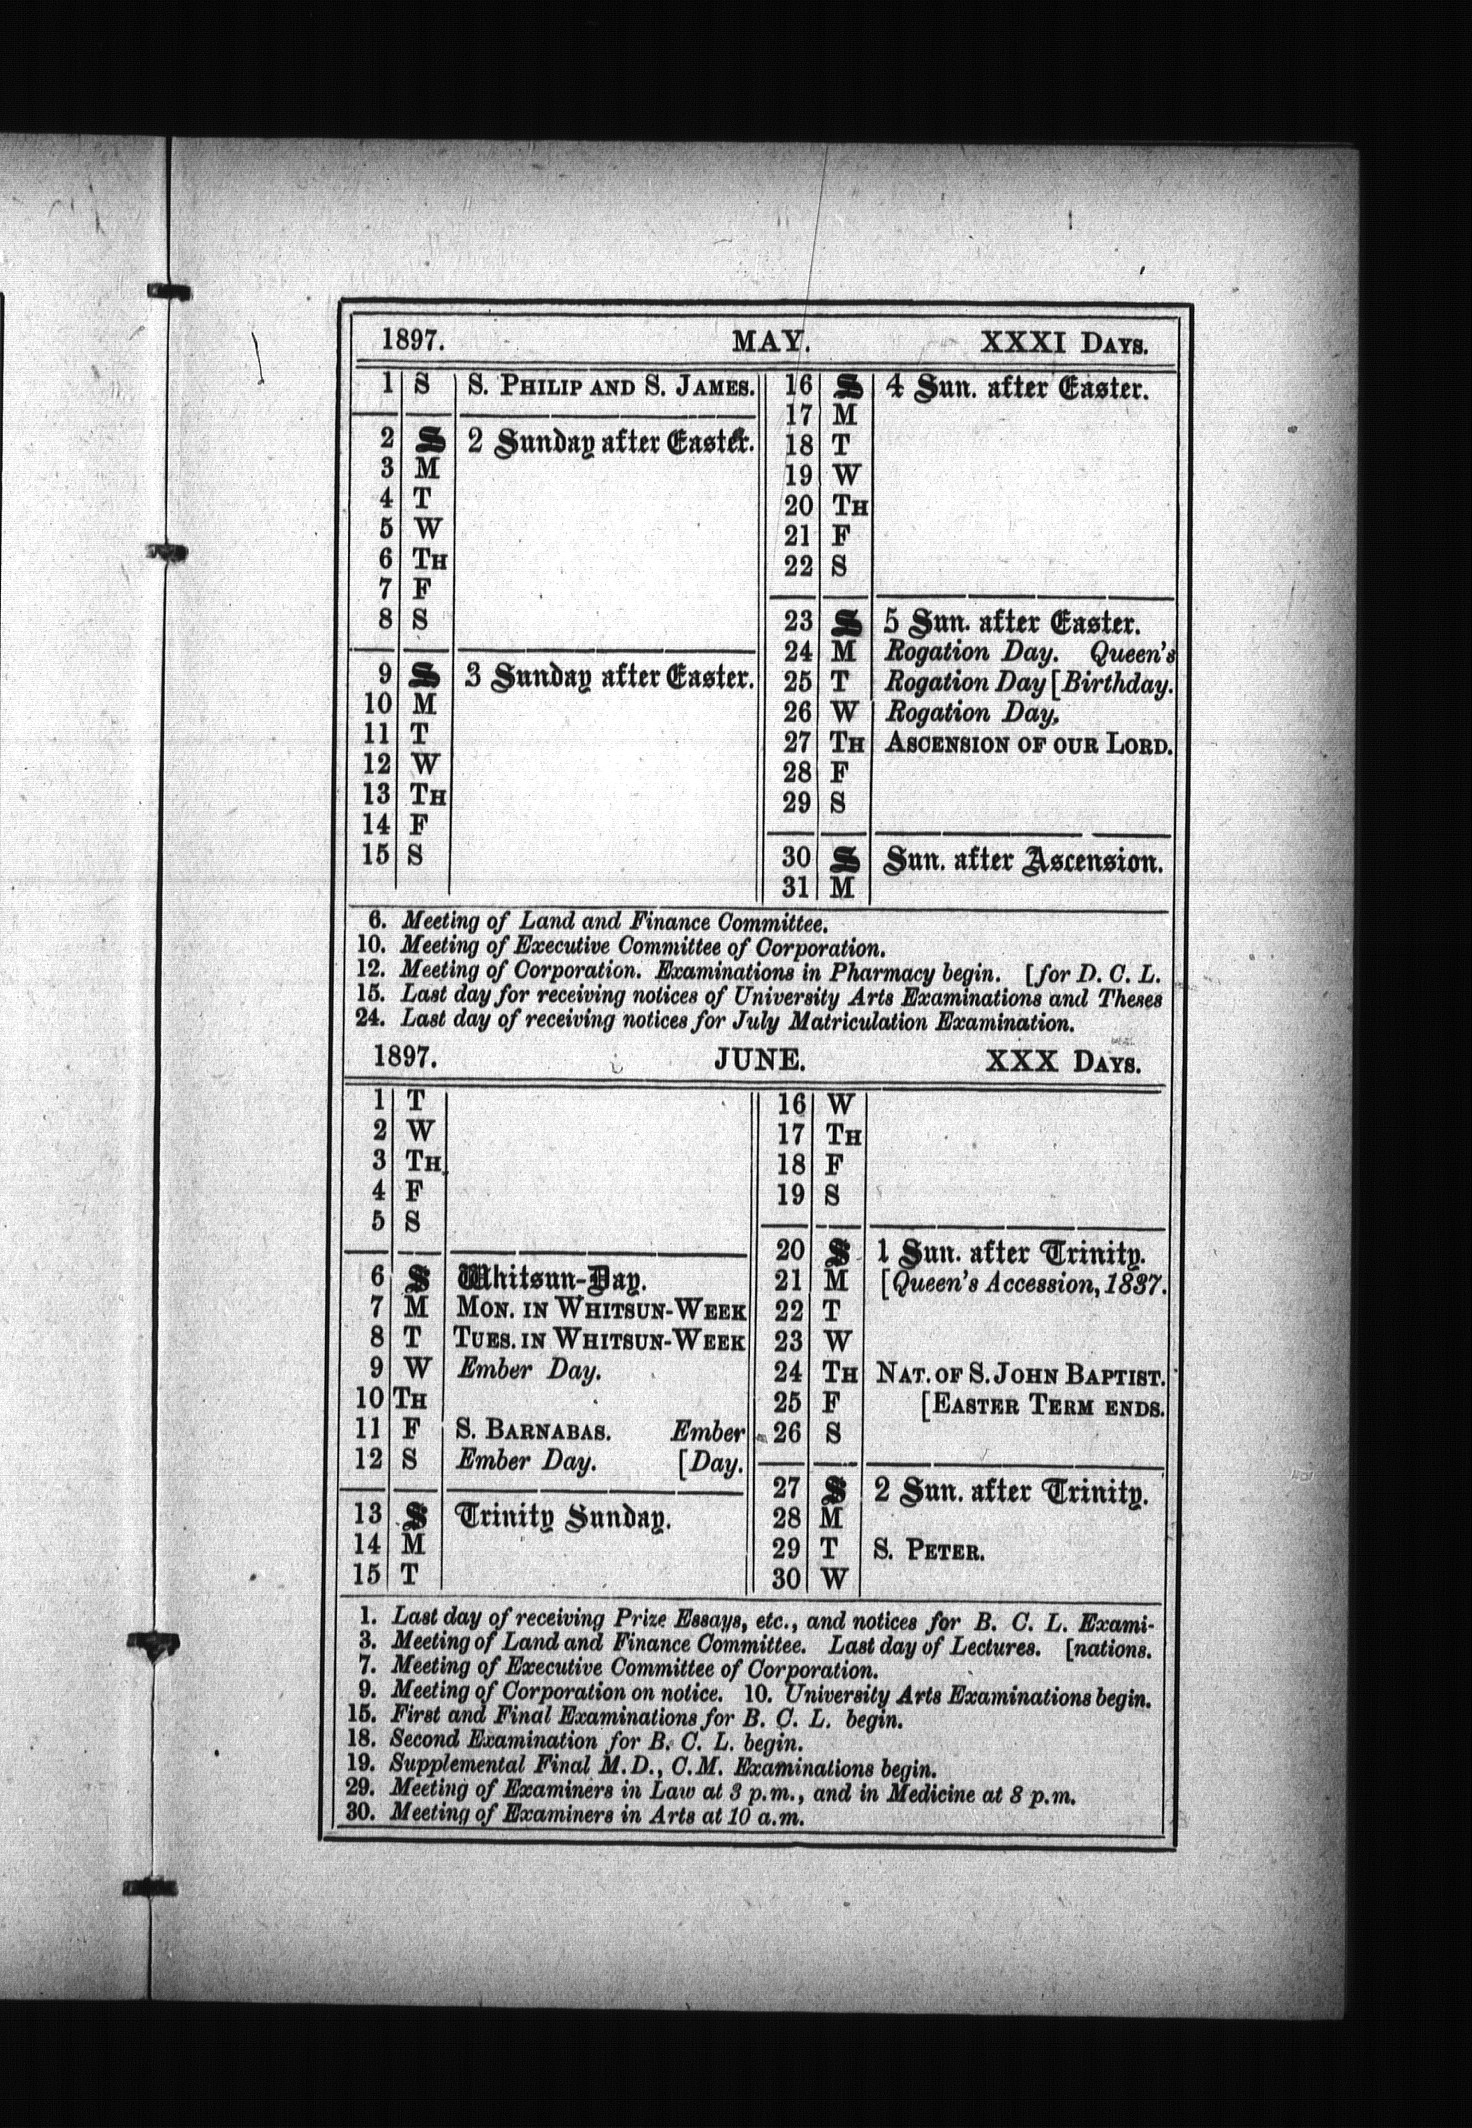 1897. MAY. XXXI DAYS.
1 S S. PHILIP AND S. JAMES.
2 S 2 Sunday after Easter.
3 M
4 T
5 W
6 TH
7 F
8 S
9 S 3 Sunday after Easter.
10 M
11 T
12 W
13 TH
14 F
15 S
16 S 4 Sun. after Easter.
17 M
18 T
19 W
20 TH
21 F
22 S
23 S 5 Sun. after Easter.
24 M Rogation Day. Queen's
25 T Rogation Day [Birthday.
26 W Rogation Day,
27 TH ASCENSION OF OUR LORD.
28 F
29 S
30 S Sun. after Ascension.
31 M
6. Meeting of Land and Finance Committee.
10. Meeting of Executive Committee of Corporation.
12. Meeting of Corporation. Examinations in Pharmacy begin. [for D. C. L.
15. Last day for receiving notices of University Arts Examinations and Theses
24. Last day of receiving notices for July Matriculation Examination.
1897. JUNE. XXX DAYS.
1 T
2 W
3 TH
4 F
5 S
6 S Whitsun-Day.
7 M MON. IN WHITSUN-WEEK
8 T TUES. IN WHITSUN-WEEK
9 W Ember Day.
10 TH
11 F S. BARNABAS. Ember
12 S Ember Day. [Day.
13 S Trinity Sunday.
14 M
15 T
16 W
17 TH
18 F
19 S
20 S 1 Sun. after Trinity.
21 M [Queen's Accession, 1837.
22 T
23 W
24 TH NAT. OF S. JOHN BAPTIST.
25 F [EASTER TERM ENDS.
26 S
27 S 2 Sun. after Trinity.
28 M
29 T S. PETER.
30 W
1. Last day of receiving Prize Essays, etc., and notices for B. C. L. Exami-
3. Meeting of Land and Finance Committee. Last day of Lectures. [nations.
7. Meeting of Executive Committee of Corporation.
9. Meeting of Corporation on notice. 10. University Arts Examinations begin.
15. First and Final Examinations for B. C. L. begin.
18. Second Examination for B. C. L. begin.
19. Supplemental Final M.D., C.M. Examinations begin.
29. Meeting of Examiners in Law at 3 p.m., and in Medicine at 8 p.m.
30. Meeting of Examiners in Arts at 10 a.m.